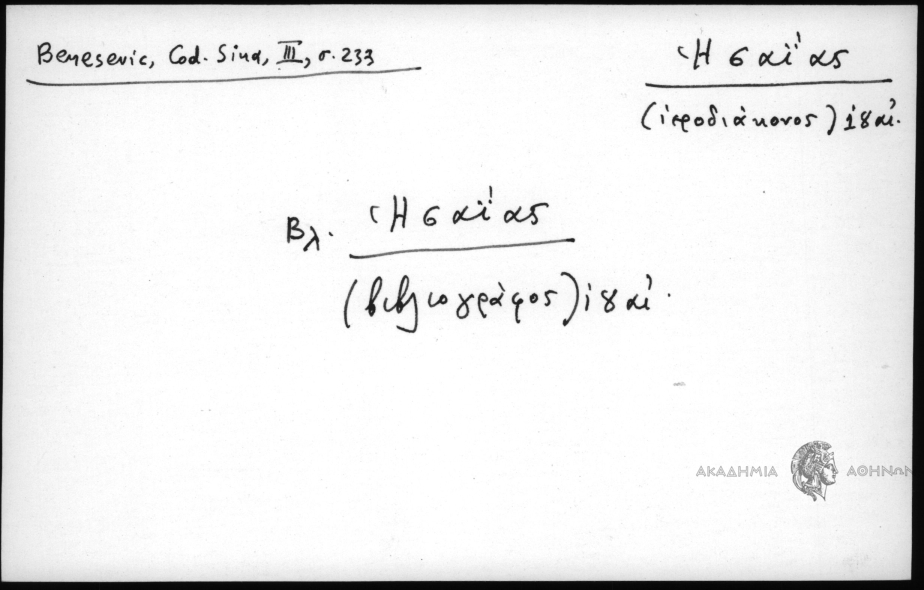 Benesevic, Cod. Sina, III, σ. 233
Ἡσαΐας
(ἱεροδιάκονος) ιγ αἰ.
Βλ. Ἡσαΐας
(βιβλιογράφος) ιγ αἰ.
ΑΚΑΔΗΜΙΑ ΑΘΗΝΩΝ